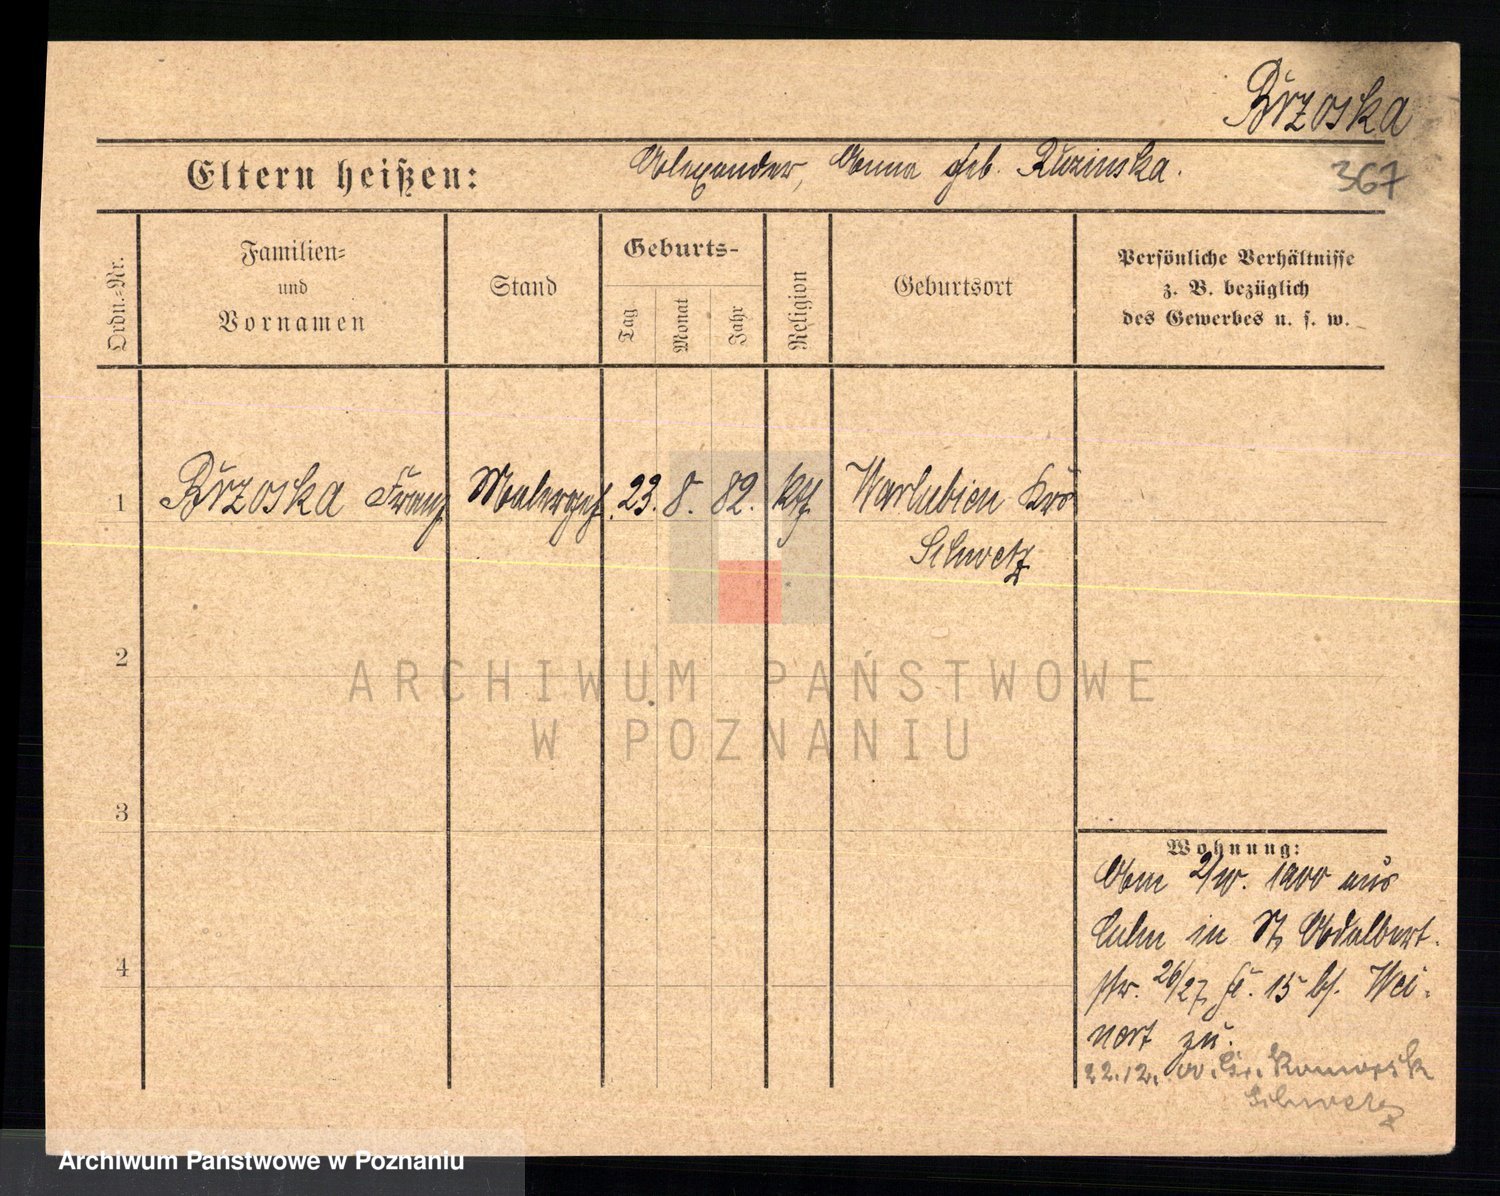 Brzoska
Eltern heißen: Alexander, Anna geb. Kuzinska.
367
Ordn.-Nr.
Familien-
und
Vornamen
Stand
Geburts-
Tag
Monat
Jahr
Religion
Geburtsort
Persönliche Verhältnisse
z. B. bezüglich
des Gewerbes u. s. w.
1 Brzoska Franz Malergeh. 23. 8. 82. kth. Warlubien Krs
Schwetz
2
ARCHIWUM PAŃSTWOWE
W POZNANIU
3
Wohnung:
Am 2/10. 1900 aus
Culm in St. Adalbert-
str. 26/27 H. 15 bs. Wei-
nert zu.
22.12.00. Gr. Komorsk
Schwetz
4
Archiwum Państwowe w Poznaniu